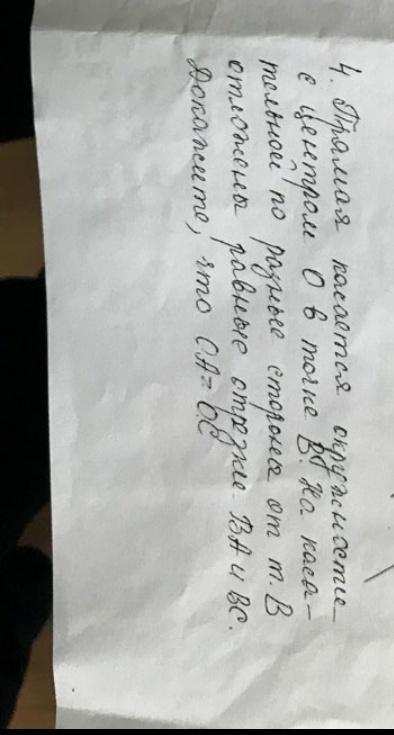 4. Прямая касается окружности
с центром О в точке В. На каса-
тельной по разные стороны от т. В
отложены равные отрезки ВА и ВС.
Докажите, что ОА = ОС